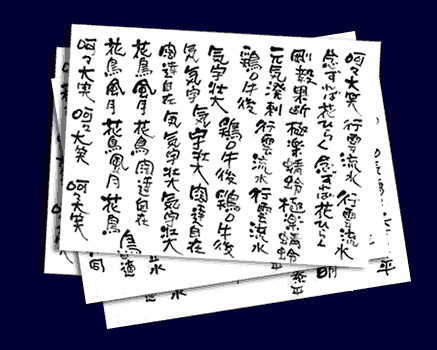 呵々大笑 行雲流水 行雲流水
念ずれば花ひらく 念ずれば花ひらく
剛毅果断 極楽蜻蛉 極楽蜻蛉
元気溌剌 行雲流水 行雲流水
鶏口牛後 鶏口牛後 鶏口牛後
気宇壮大 気宇壮大 闊達自在
気宇壮大
闊達自在 気宇壮大
花鳥風月 花鳥風月 闊達自在
花鳥風月 花鳥風月 花鳥
呵々大笑 呵々大笑 呵々大笑